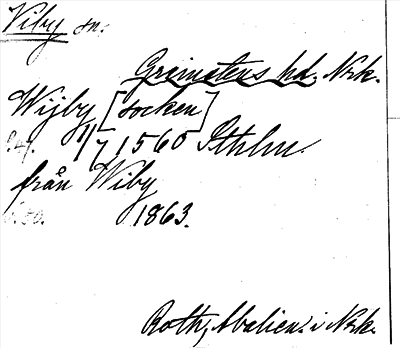 Viby sn:
Grimstens hd, Nrk.
Wijby [socken]
1/7 1560 Sthlm
från Wiby
1863.
Roth, i Nrk.